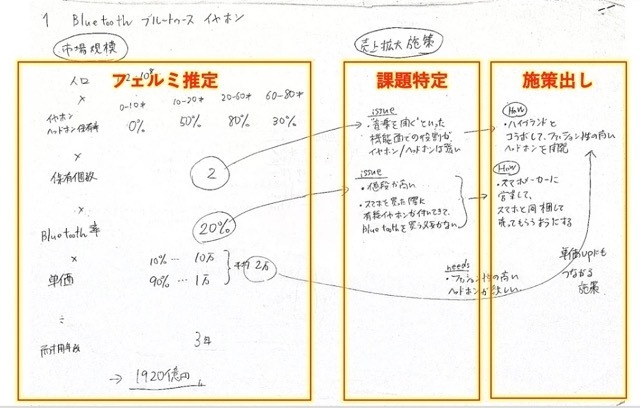 1 Bluetooth ブルートゥース イヤホン
市場規模
売上拡大施策
フェルミ推定
課題特定
施策出し
人口
×
0-10才 10-20才 20-60才 60-80才
イヤホン
ヘッドホン保有率 0% 50% 80% 30%
×
保有個数 2
×
Bluetooth率 20%
×
単価
10% … 10万
90% … 1万
平均 2万
÷
耐用年数 3年
→ 1920億円
issue
・"音楽を聞く"といった
機能面での役割が
イヤホン/ヘッドホンは強い
issue
・値段が高い
・スマホを買った際に
有線イヤホンが付いてきて、
Bluetoothを買う必要がない
needs
・ファッション性の高い
ヘッドホンが欲しい
How
・ハイブランドと
コラボして、ファッション性の高い
ヘッドホンを開発
How
・スマホメーカーに
営業して、
スマホと同梱して
売ってもらうようにする
単価upにも
つながる
施策